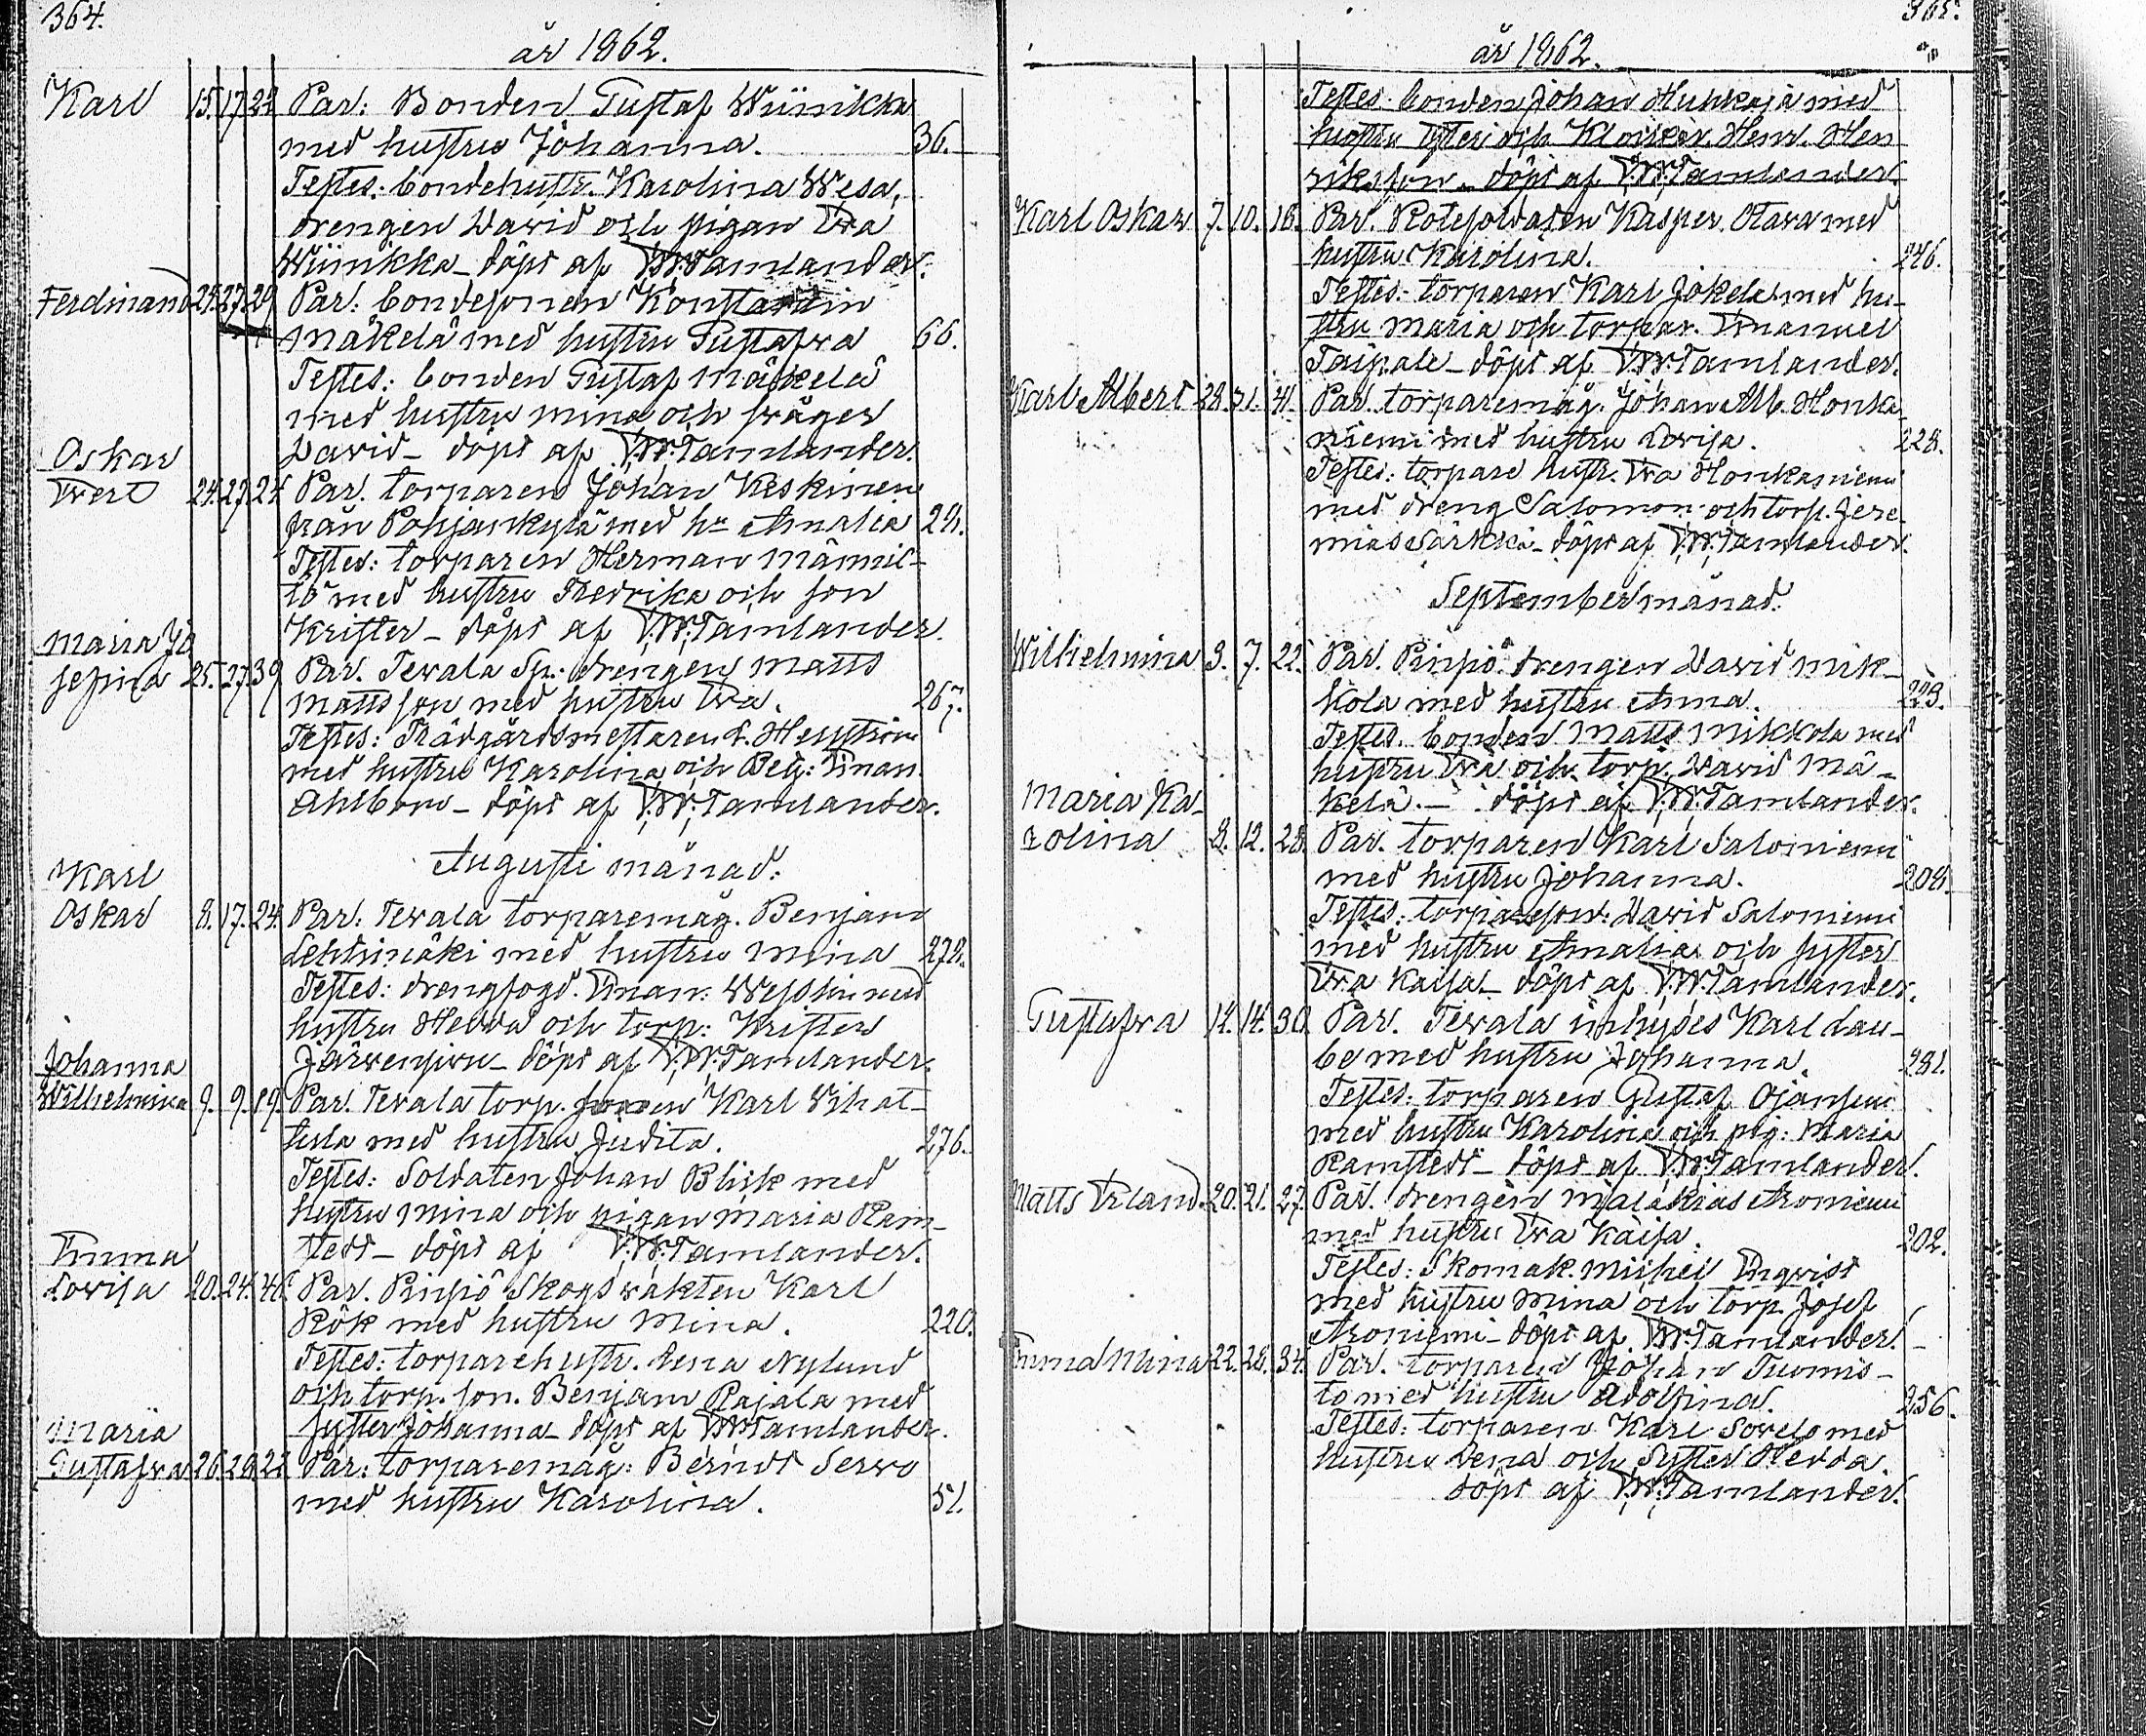 364.
år 1862.
Karl 15. 17. 22 Par: Bonden Gustaf Wiinikka
med hustru Johanna. 36.
Testes: bondehustr. Karolina Wesa,
drengen David och pigan Eva
Wiinikka_ döpt af V.W.Tamlander.
Ferdinand 24. 27. 29 Par: bondesonen Konstantin
Mäkelä med hustru Gustafva 66.
Testes: bonden Gustaf Mäkelä
med hustru Mina och swåger
David_ döpt af V.W.Tamlander.
Oskar
Evert 24. 27. 24. Par. torparen Johan Keskinen
från Pohjankylä med hu Amalia 24.
Testes: torparen Herman Männis-
tö med hustru Fredrika och son
Krister_ döpt af V.W.Tamlander.
Maria Jo
sefina 25. 27. 39 Par. Tevala Sp. drengen Matts
Mattsson med hustru Eva. 267.
Testes: Trädgårdsmestaren
med hustru Karolina och Betj: Eman.
Ahlbom_ döpt af V.W.Tamlander.
Augusti månad.
Karl
Oskar 8. 17. 24. Par: Tevala torparemåg. Benjam
Lehtimäki med hustru Mina 272.
Testes: drengfogd. Eman: med
hustru Hedda och torp: Krister
Järvensivu_ döpt af V.W.Tamlander.
Johanna
Wilhelmina 9. 9. 19. Par. Tevala torp. sonen Karl Vihat-
tula med hustru Judita. 276.
Testes: Soldaten Johan Blisk med
hustru Mina och pigan Maria Ram-
stedt_ döpt af V.W.Tamlander.
Emma
Lovisa 20. 24. 46. Par. Pinsiö Skogsvakten Karl
Rök med hustru Mina. 220.
Testes: torparehustr. Lena Nylund
och torp. son. Benjam Rajala med
syster Johanna_ döpt af V.W.Tamlander.
Maria
Gustafva 26. 28. 22. Par: torparemåg: Berndt Servo
med hustru Karolina. 51.
365.
år 1862.
Testes bonden Johan Huhkaja med
hustru och Klockar. Henr. Hen
riksson_ döpt af V.W.Tamlander.
Karl Oskar 7. 10. 18. Par. Rotesoldaten Kasper Otava med
hustru Karolina. 246.
Testes: torparen Karl Jokela med hu-
stru Maria och torpar. Emanuel
Taipale_ döpt af V.W.Tamlander.
Karl Albert 28. 31. 41. Par. torparemåg. Johan Alb. Honka
niemi med hustru Lovisa. 228.
Testes: torpare hustr. Eva Honkaniemi
med dreng Salomon och torp. Jere
mias Särkkä_ döpt af V.W.Tamlander.
September månad.
Wilhelmina 3. 7. 22. Par. Pinsiö drengen David Mik-
kola med hustru Anna. 223.
Testes. bonden Matts Mikkola med
hustru Eva och torp. David Mä-
kelä._ döpt af V.W.Tamlander.
Maria Ka-
rolina 8. 12. 28. Par. torparen Karl Saloniemi
med hustru Johanna. 208.
Testes: torpareson: David Saloniemi
med hustru Amalia och syster
Eva Kaisa_ döpt af V.W.Tamlander.
Gustafva 14. 14. 30. Par. Tevala inhyses Karl Lau-
be med hustru Johanna. 281.
Testes: torparen Gustaf Ojansuu
med hustru Karolina och pig: Maria
Ramstedt_ döpt af V.W.Tamlander.
Matts Erland. 20. 21. 27. Par. drengen Malakias Aroniemi
med hustru Eva Kaisa. 202.
Testes: Skomak. Michel Enqvist
med hustru Mina och torp. Josef
Aroniemi_ döpt af V.W.Tamlander.
Emma Mina 22. 28. 34. Par. torparen Johan Tuomis-
to med hustru Adolfina. 256.
Testes: torparen Karl Sorelo med
hustru Lena och Syster Hedda.
döpt af V.W.Tamlander.